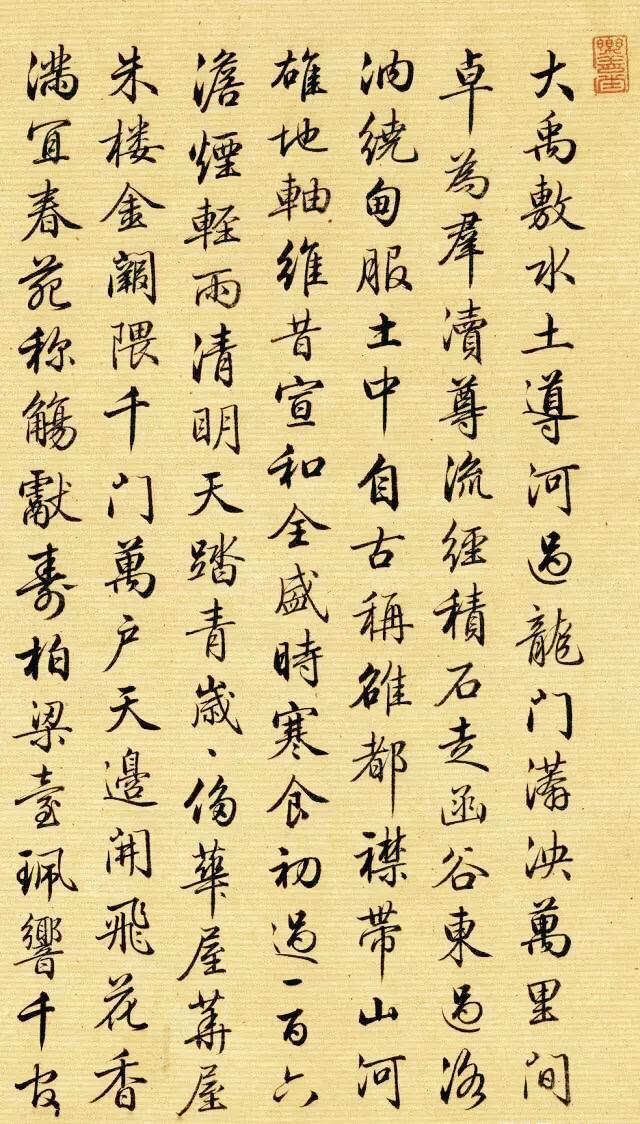 大禹敷水土導河過龍门漭泱萬里间
卓為羣瀆尊流經積石走函谷東過洛
汭繞甸服土中自古稱雄都襟帶山河
雄地軸維昔宣和全盛時寒食初過一百六
澹煙輕雨清明天踏青歲、侈華屋華屋
朱楼金闕隈千门萬户天邊開飛花香
满宜春苑称觴獻壽柏梁臺珮響千官